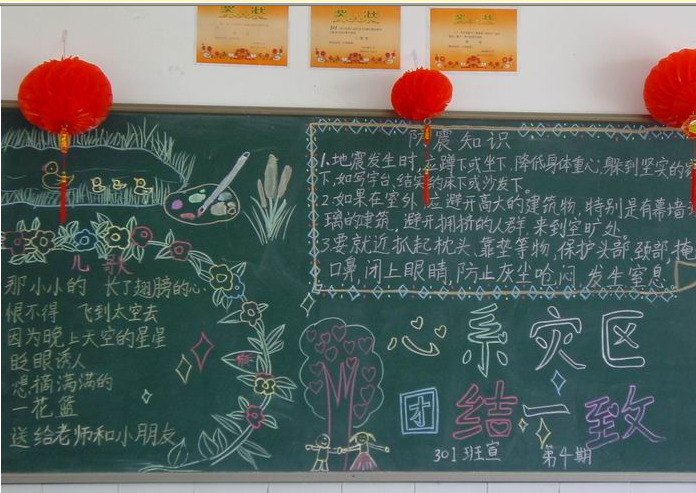 奖状
奖状
奖状
防震知识
1.地震发生时,应蹲下或坐下,降低身体重心,躲到坚实的
下,如写字台、结实的床下或沙发下。
2.如果在室外,应避开高大的建筑物,特别是有幕墙
璃的建筑,避开拥挤的人群,来到空旷处。
3.要就近抓起枕头、靠垫等物,保护头部、颈部,掩
口鼻,闭上眼睛,防止灰尘呛闷,发生窒息.
儿歌
那小小的 长了翅膀的心
恨不得 飞到太空去
因为晚上天空的星星
眨眼诱人
想摘满满的
一花篮
送给老师和小朋友
心系灾区
团结一致
301班宣 第4期